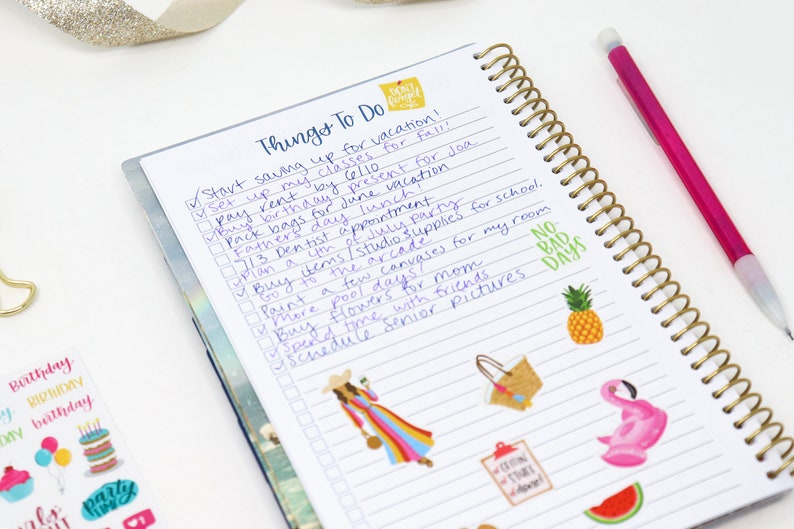 Things To Do
DON'T
forget
✓ Start saving up for vacation!
✓ Set up my classes for fall!
pay rent by 6/10
✓ Buy birthday present for Joa
Pack bags for June vacation
Fathers day lunch!
7/3 Dentist appointment
✓ Plan a 4th of July party
✓ Buy items/studio supplies for school.
Go to the arcade
Paint a few canvases for my room
✓ More pool days!
Buy flowers for mom
✓ Spend time with friends
✓ Schedule senior pictures
NO
BAD
DAYS
GETTIN'
STUFF
done!
Birthday
BIRTHDAY
birthday
DAY
party
TIME
girls